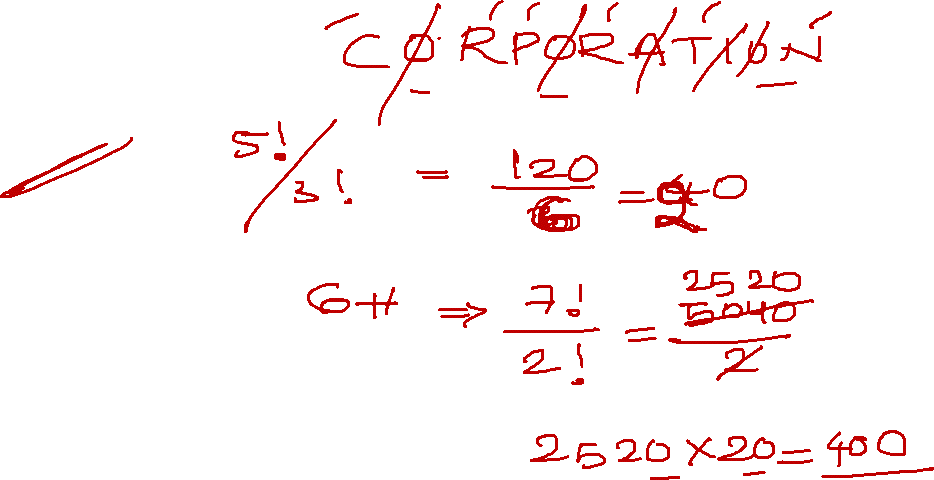 CORPORATION
5!/3! = 120/6 = 20
6+1 ⇒ 7!/2! = 2520 5040/2
2520 × 20 = 400